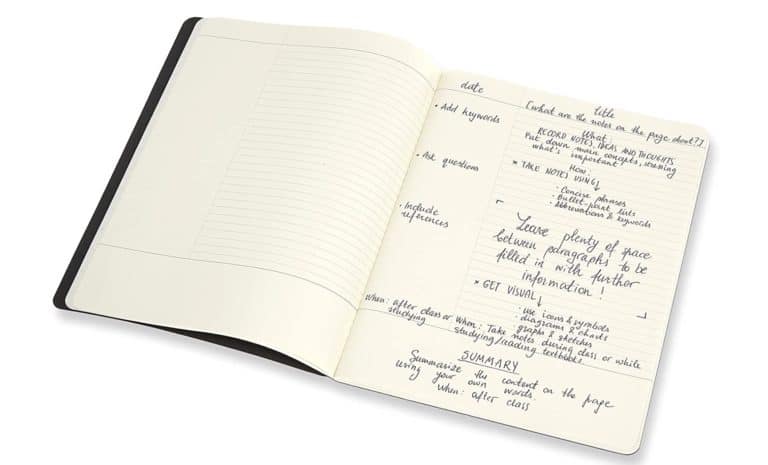 date
title
[what are the notes on the page about?]
• Add keywords
• Ask questions
• Include
references
When: after class or
studying
What:
RECORD NOTES, IDEAS AND THOUGHTS
Put down main concepts, stressing
what's important
How:
* TAKE NOTES USING↓
• Concise phrases
• Bullet-point lists
• Abbreviations & keywords
Leave plenty of space
between paragraphs to be
filled in with further
information!
* GET VISUAL↓
• use icons & symbols
• diagrams & charts
• graphs & sketches
When: Take notes during class or while
studying/reading textbooks
SUMMARY
Summarize the content on the page
using your own words.
When: after class